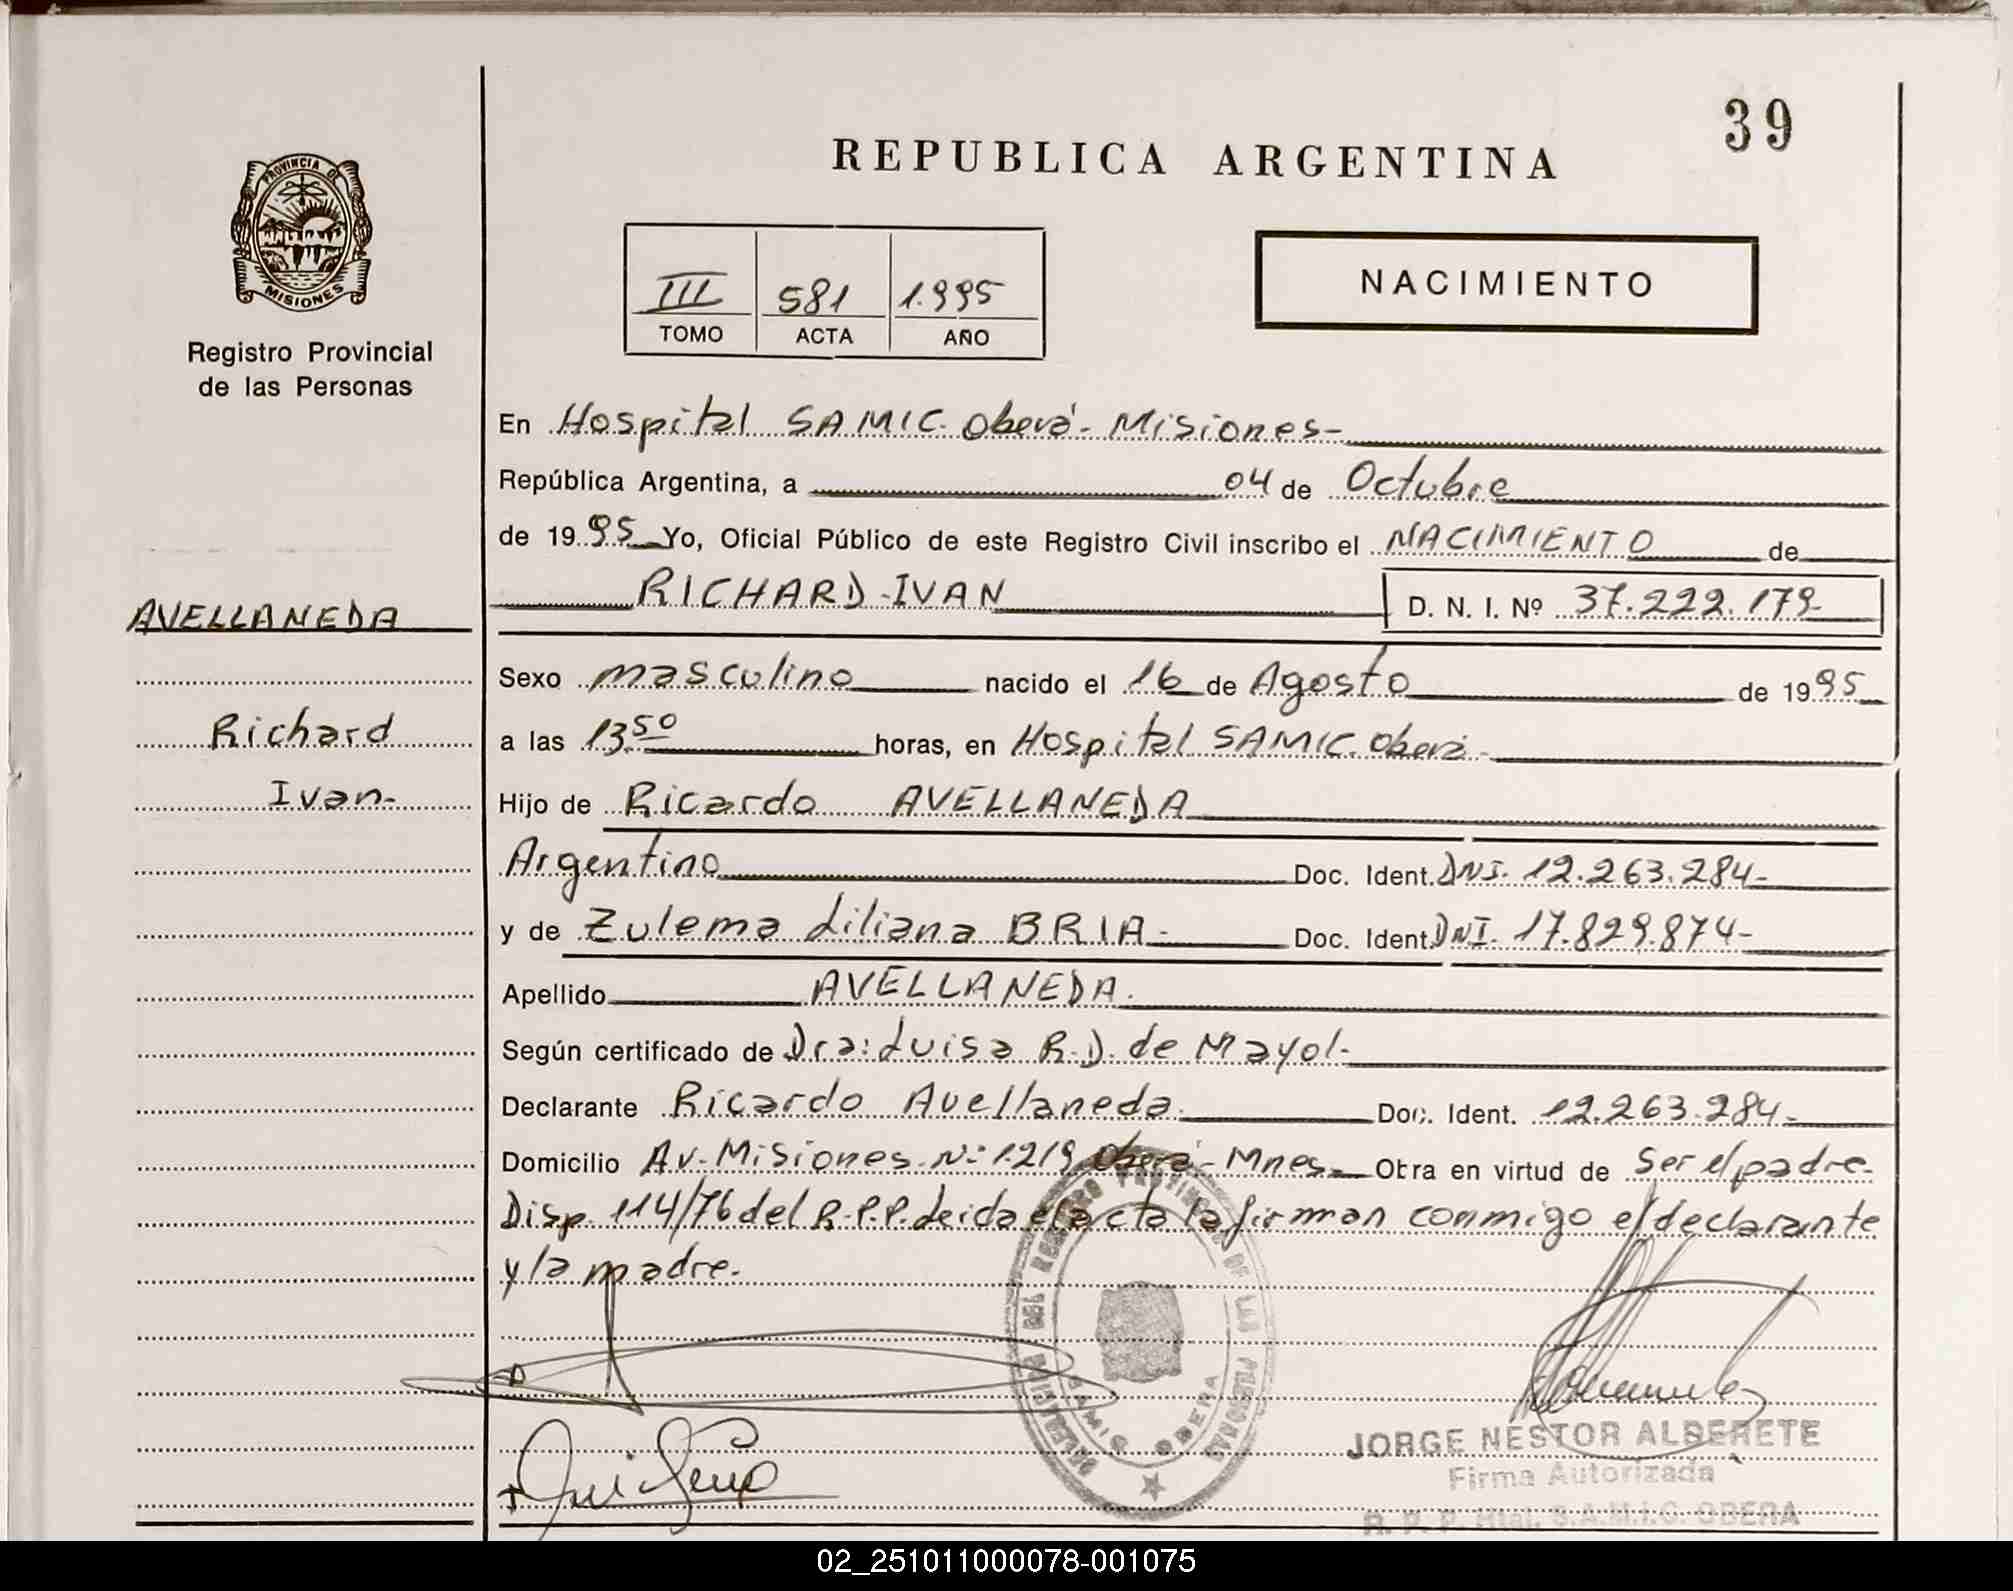 39
REPUBLICA ARGENTINA
PROVINCIA DE
MISIONES
Registro Provincial
de las Personas
III 581 1.995
TOMO ACTA AÑO
NACIMIENTO
En Hospital SAMIC. Oberá - Misiones-
República Argentina, a 04 de Octubre
de 1995 Yo, Oficial Público de este Registro Civil inscribo el NACIMIENTO de
RICHARD IVAN D. N. I. Nº 37.222.179-
AVELLANEDA
Richard
Ivan-
Sexo masculino nacido el 16 de Agosto de 1995
a las 13,50 horas, en Hospital SAMIC. Oberá -
Hijo de Ricardo AVELLANEDA
Argentino Doc. Ident. DNI. 12.263.284-
y de Zulema Liliana BRIA- Doc. Ident. DNI. 17.829.874-
Apellido AVELLANEDA.
Según certificado de Dra: Luisa R. D. de Mayol-
Declarante Ricardo Avellaneda. Doc. Ident. 12.263.284-
Domicilio Av. Misiones Nº 1219 Oberá - Mnes- Obra en virtud de Ser el padre-
Disp. 114/76 del R.P.P. Leida el acta la firman conmigo el declarante
y la madre.
DELEGACION DEL REGISTRO PROVINCIAL DE LAS PERSONAS
SAMIC OBERA
JORGE NESTOR ALBERETE
Firma Autorizada
R. P. P. Htal. S.A.M.I.C. OBERA
02_251011000078-001075